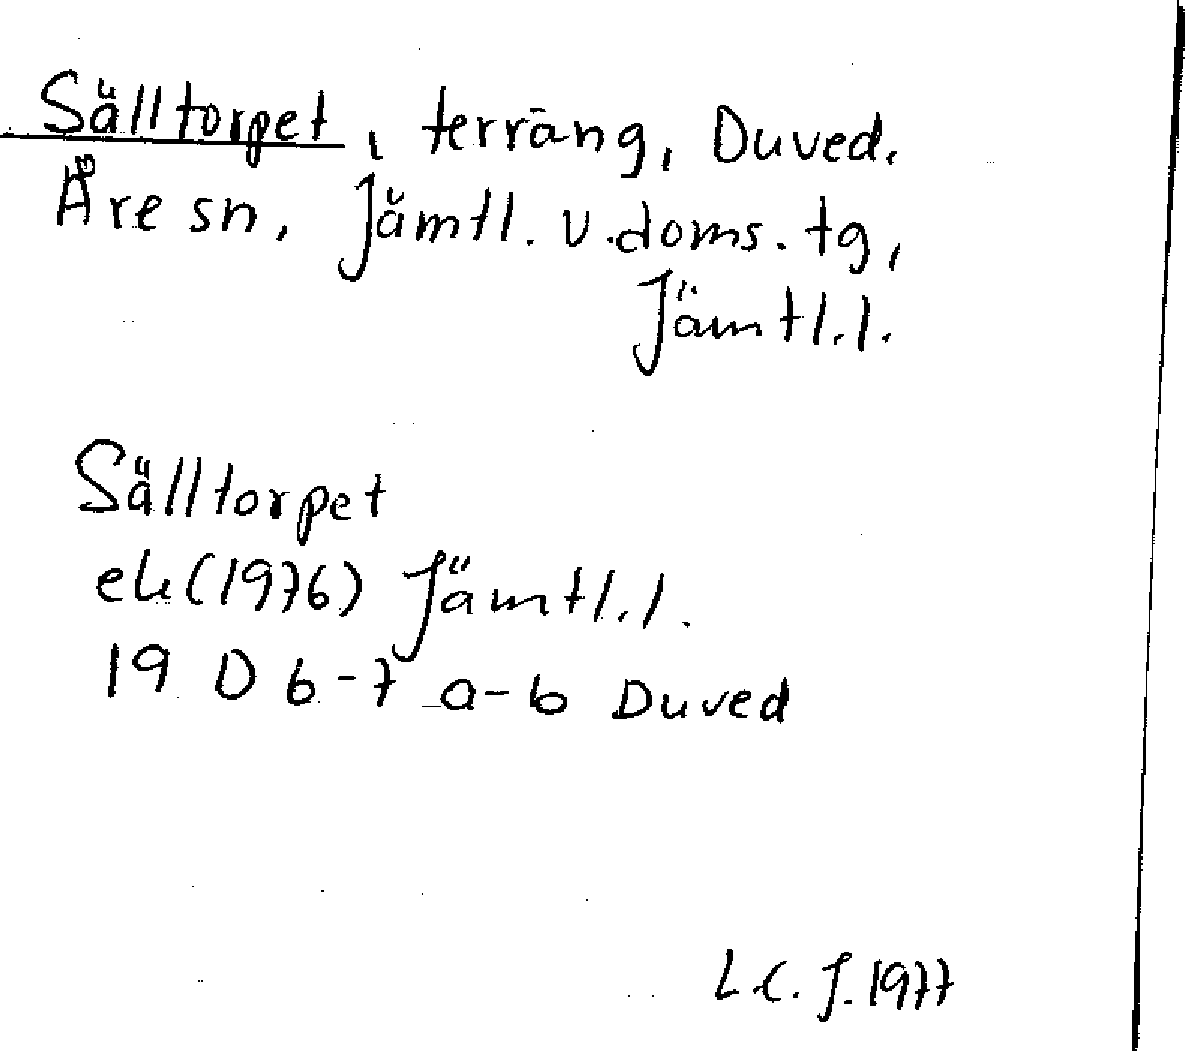 Sälltorpet, terräng, Duved.
Åre sn, Jämtl. v. doms. tg,
Jämtl.l.
Sälltorpet
ek (1976) Jämtl.l.
19 D 6-7 a-b Duved
L.C.J. 1977